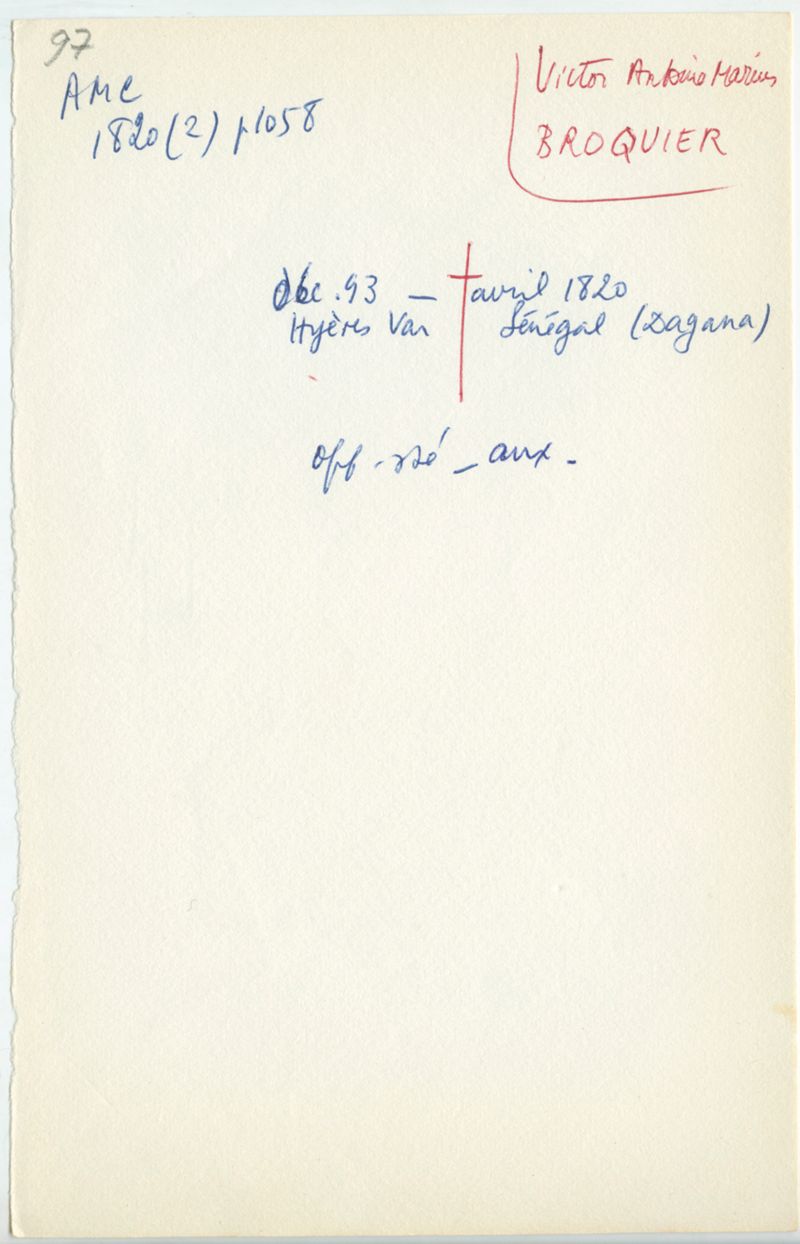 97
AMC
1820(2) p1058
Victor Antoine Marius
BROQUIER
déc. 93 — † avril 1820
Hyères Var Sénégal (Dagana)
off. sté - aux.